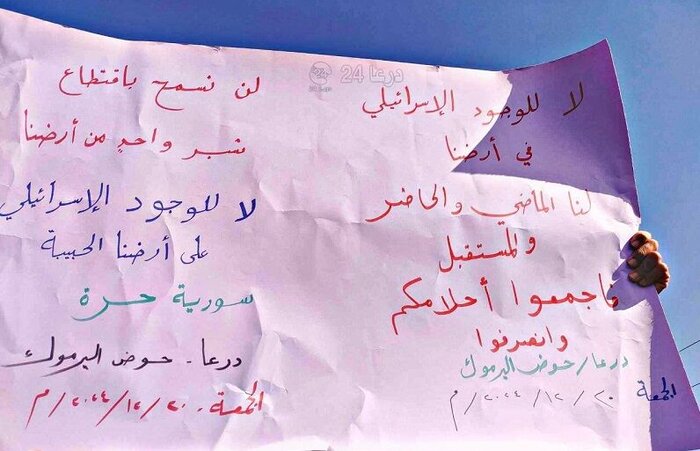 درعا 24
لا للوجود الإسرائيلي
في أرضنا
لنا الماضي والحاضر
والمستقبل
فاجمعوا أحلامكم
وانصرفوا
درعا/حوض اليرموك
الجمعة ٢٠/١٢/٢٠٢٤/م
لن نسمح باقتطاع
شبر واحدٍ من أرضنا
لا للوجود الإسرائيلي
على أرضنا الحبيبة
سورية حرة
درعا - حوض اليرموك
الجمعة - ٢٠/١٢/٢٠٢٤/م